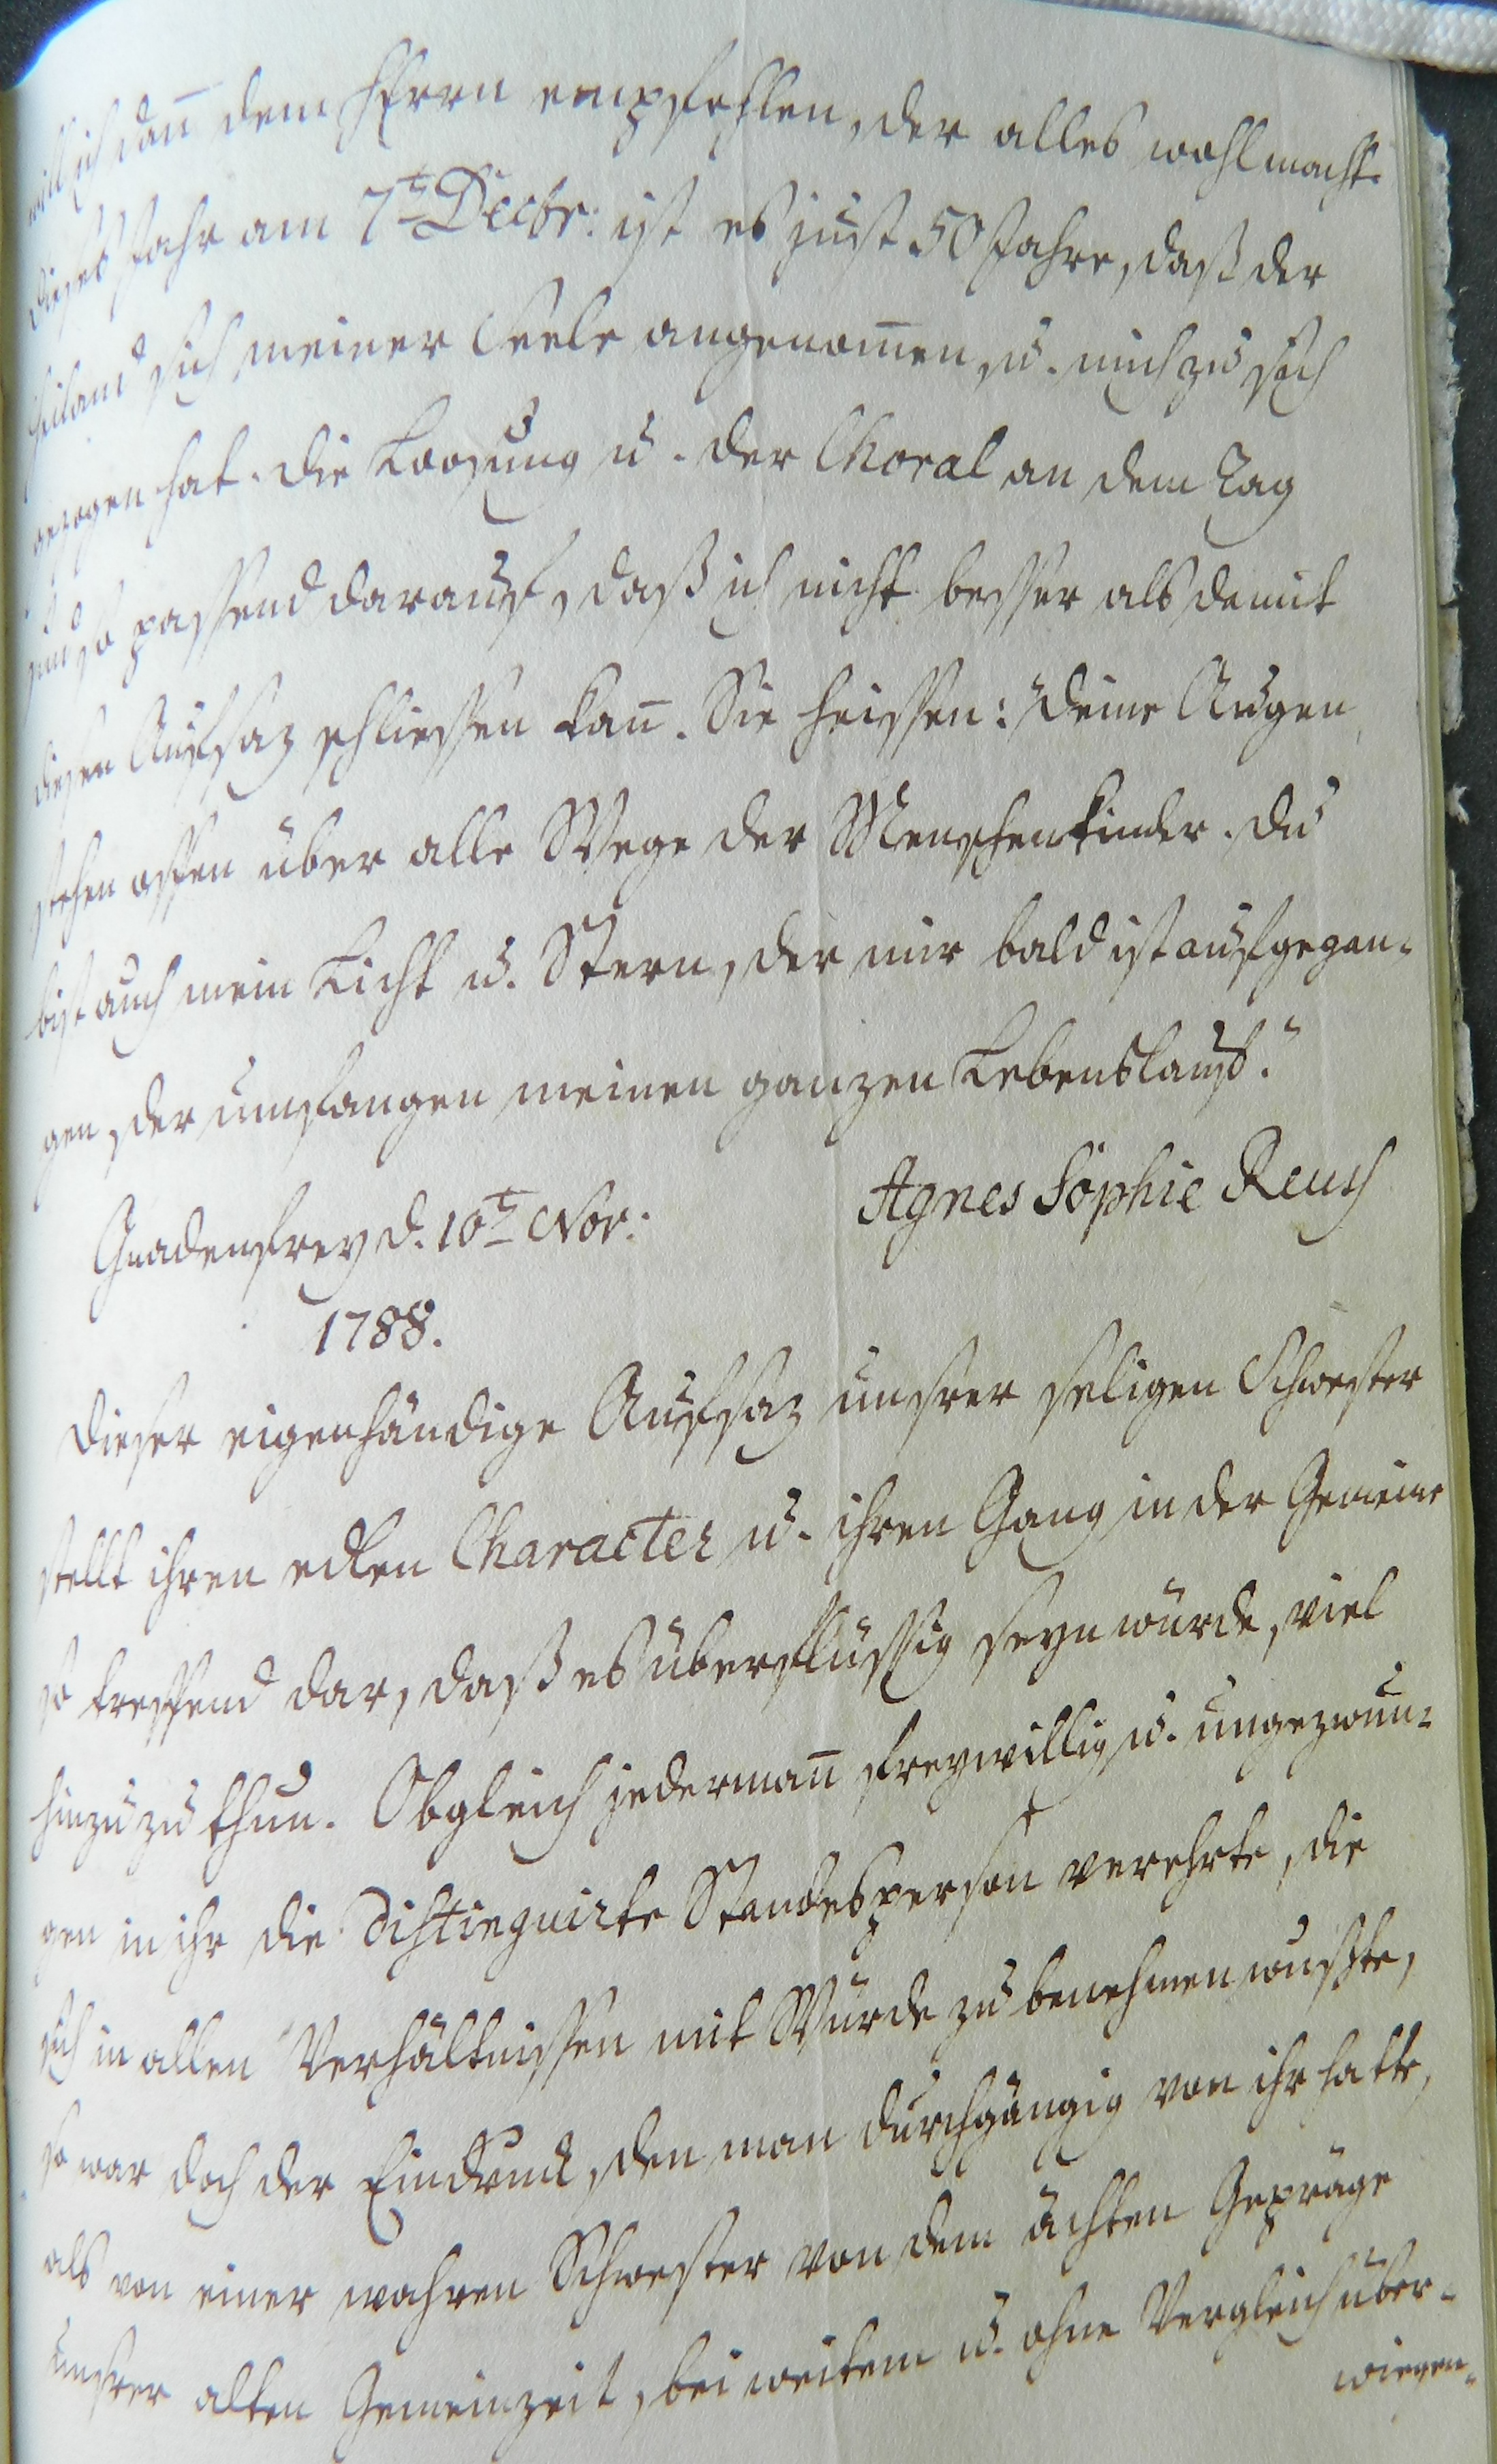 will ich dañ dem HErrn empfehlen, der alles wohl macht.
Dieses Jahr am 7t Decbr: ist es just 50 Jahre, daß der
Heiland sich meiner Seele angenom̄en, u. mich zu sich
gezogen hat. Die Loosung u. der Choral an dem Tag
sind so passend darauf, daß ich nicht besser als damit
diesen Aufsaz schliessen kañ. Sie heissen: "Deine Augen
stehen offen über alle Wege der Menschenkinder. Du
bist auch mein Licht u. Stern, der mir bald ist aufgegan-
gen, der umfangen meinen ganzen Lebenslauf."
Agnes Sophie Reuß
Gnadenfrey d. 10t Nov:
1788.
Dieser eigenhändige Aufsaz unsrer seligen Schwester
stellt ihren edlen Character u. ihren Gang in der Gemeine
so treffend dar, daß es überflüssig seyn würde, viel
hinzu zu thun. Obgleich jedermañ freywillig u. ungezwun-
gen in ihr die distinguirte Standesperson verehrte, die
sich in allen Verhältnissen mit Würde zu benehmen wußte,
so war doch der Eindruck, den man durchgängig von ihr hatte,
als von einer wahren Schwester von dem ächten Gepräge
unsrer alten Gemeinzeit, bei weitem u. ohne Vergleich über-
wiegen-